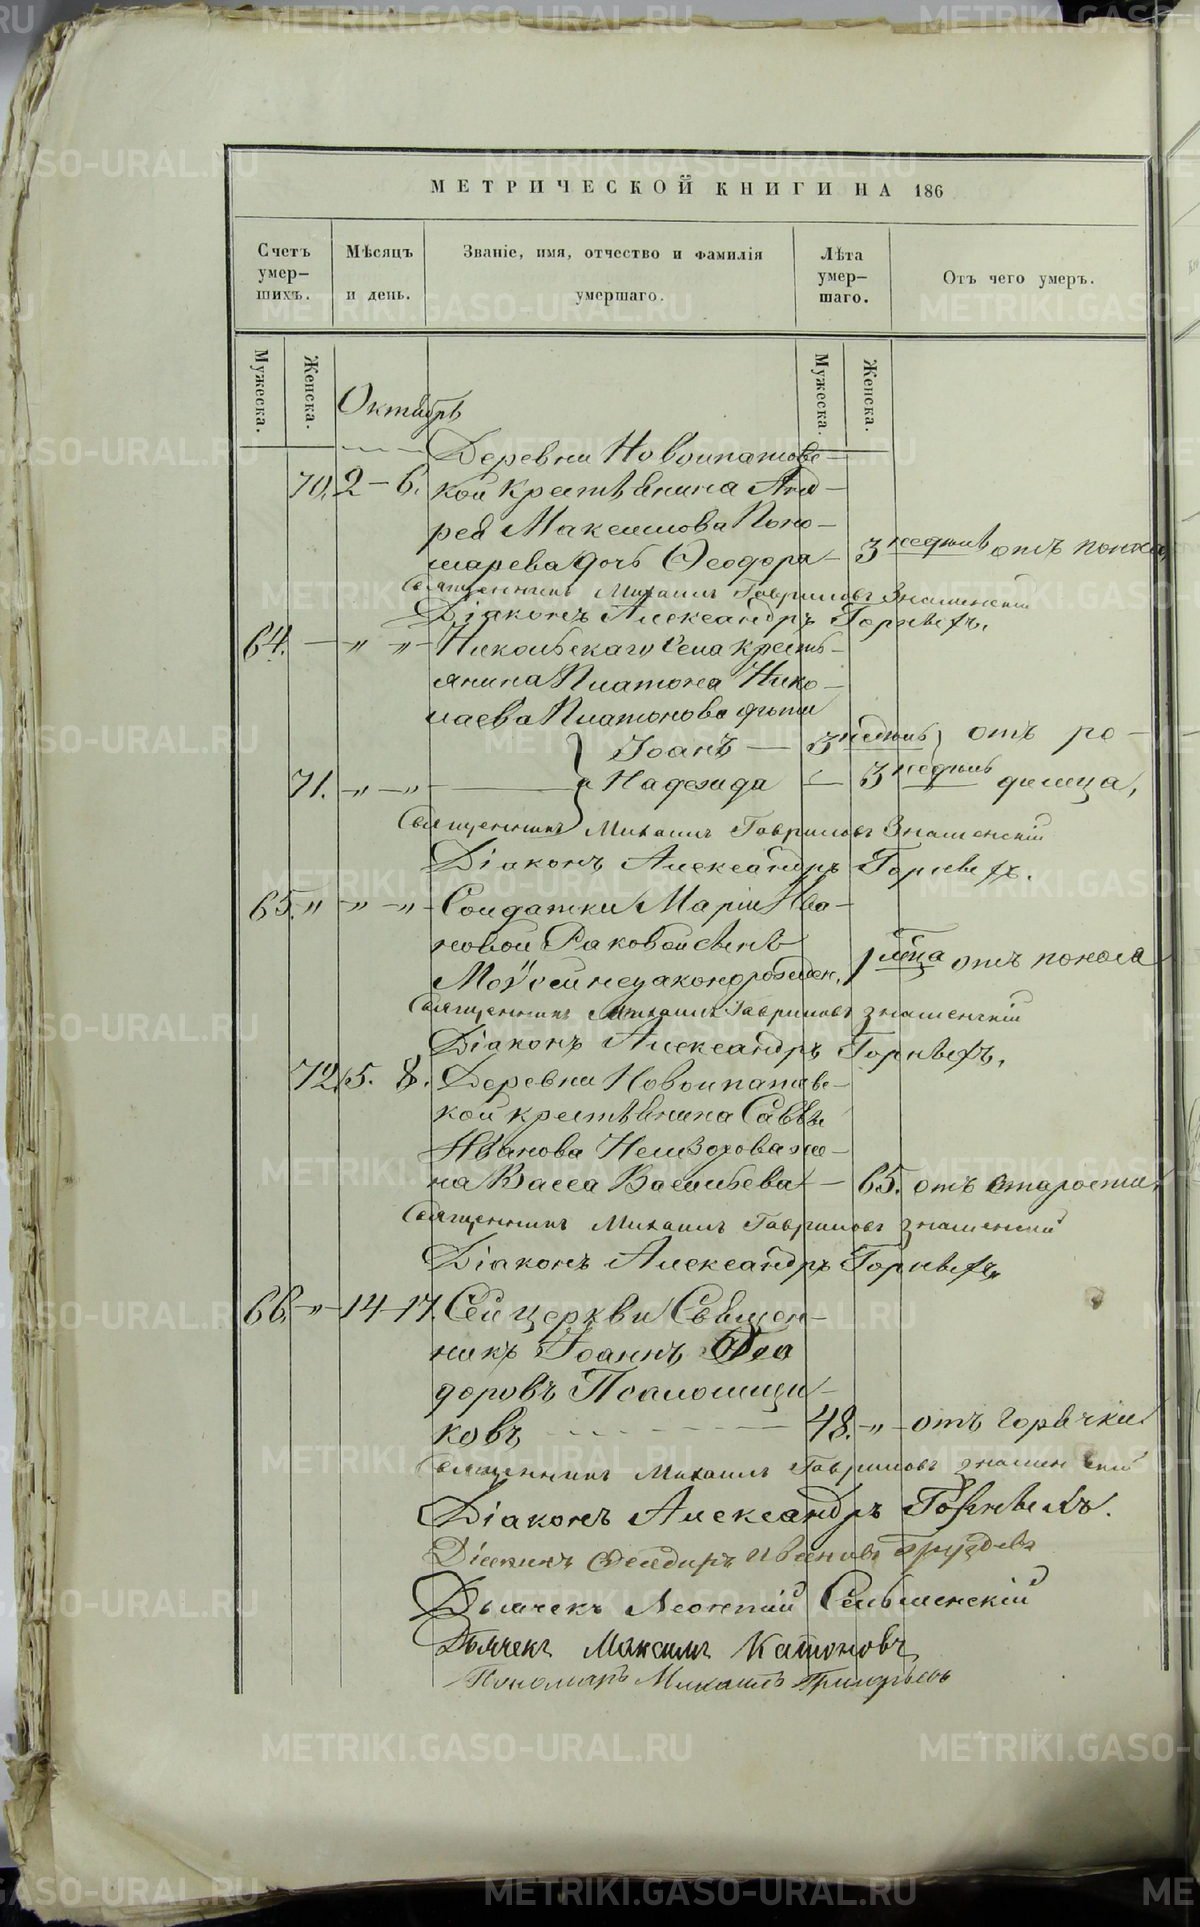 МЕТРИЧЕСКОЙ КНИГИ НА 186
Счетъ умер-шихъ.
Мѣсяцъ и день.
Званіе, имя, отчество и фамилія умершаго.
Лѣта умер-шаго.
Отъ чего умеръ.
Мужеска. Женска. Мужеска. Женска.
Октябрь
Деревни Новоипатовс-
70. 2 - 6. кой крестьянина Анд-
рея Максимова Поно-
марева дочь Ѳеодора - 3 недѣль отъ поноса
Священникъ Михаилъ Гавриловъ Знаменскій
Діаконъ Александръ Горныхъ.
64. - " " - Никольскаго села кресть-
янина Платона Нико-
лаева Платонова дѣти
Іоанъ - 3 недѣль отъ ро-
71. -"-"- и Надежда - 3 недѣль димца,
Священникъ Михаилъ Гавриловъ Знаменскій
Діаконъ Александръ Горныхъ.
65. " -"-"- Солдатки Маріи Ива-
новой Раковой сынъ
Моѵсей незаконорожден, 1 мѣца отъ поноса
Священникъ Михаилъ Гавриловъ Знаменскій
Діаконъ Александръ Горныхъ.
72. 5. 8. Деревни Новоипатовс-
кой крестьянина Саввы
Иванова же-
на Васса Васильева - 65. отъ старости,
Священникъ Михаилъ Гавриловъ Знаменскій
Діаконъ Александръ Горныхъ
66. -"- 14-17. Сей церкви Священ-
никъ Іоаннъ Ѳео
доровъ Псаломщи-
ковъ - 48. -"- отъ горячки
Священникъ Михаилъ Гавриловъ Знаменскій
Діаконъ Александръ Горныхъ.
Діаконъ Ѳеодоръ Ивановъ Груздевъ
Дьячекъ Леонтий Сельменскій
Дьячекъ Максимъ Катоновъ
Пономарь Михаилъ Григорьевъ
METRIKI.GASO-URAL.RU